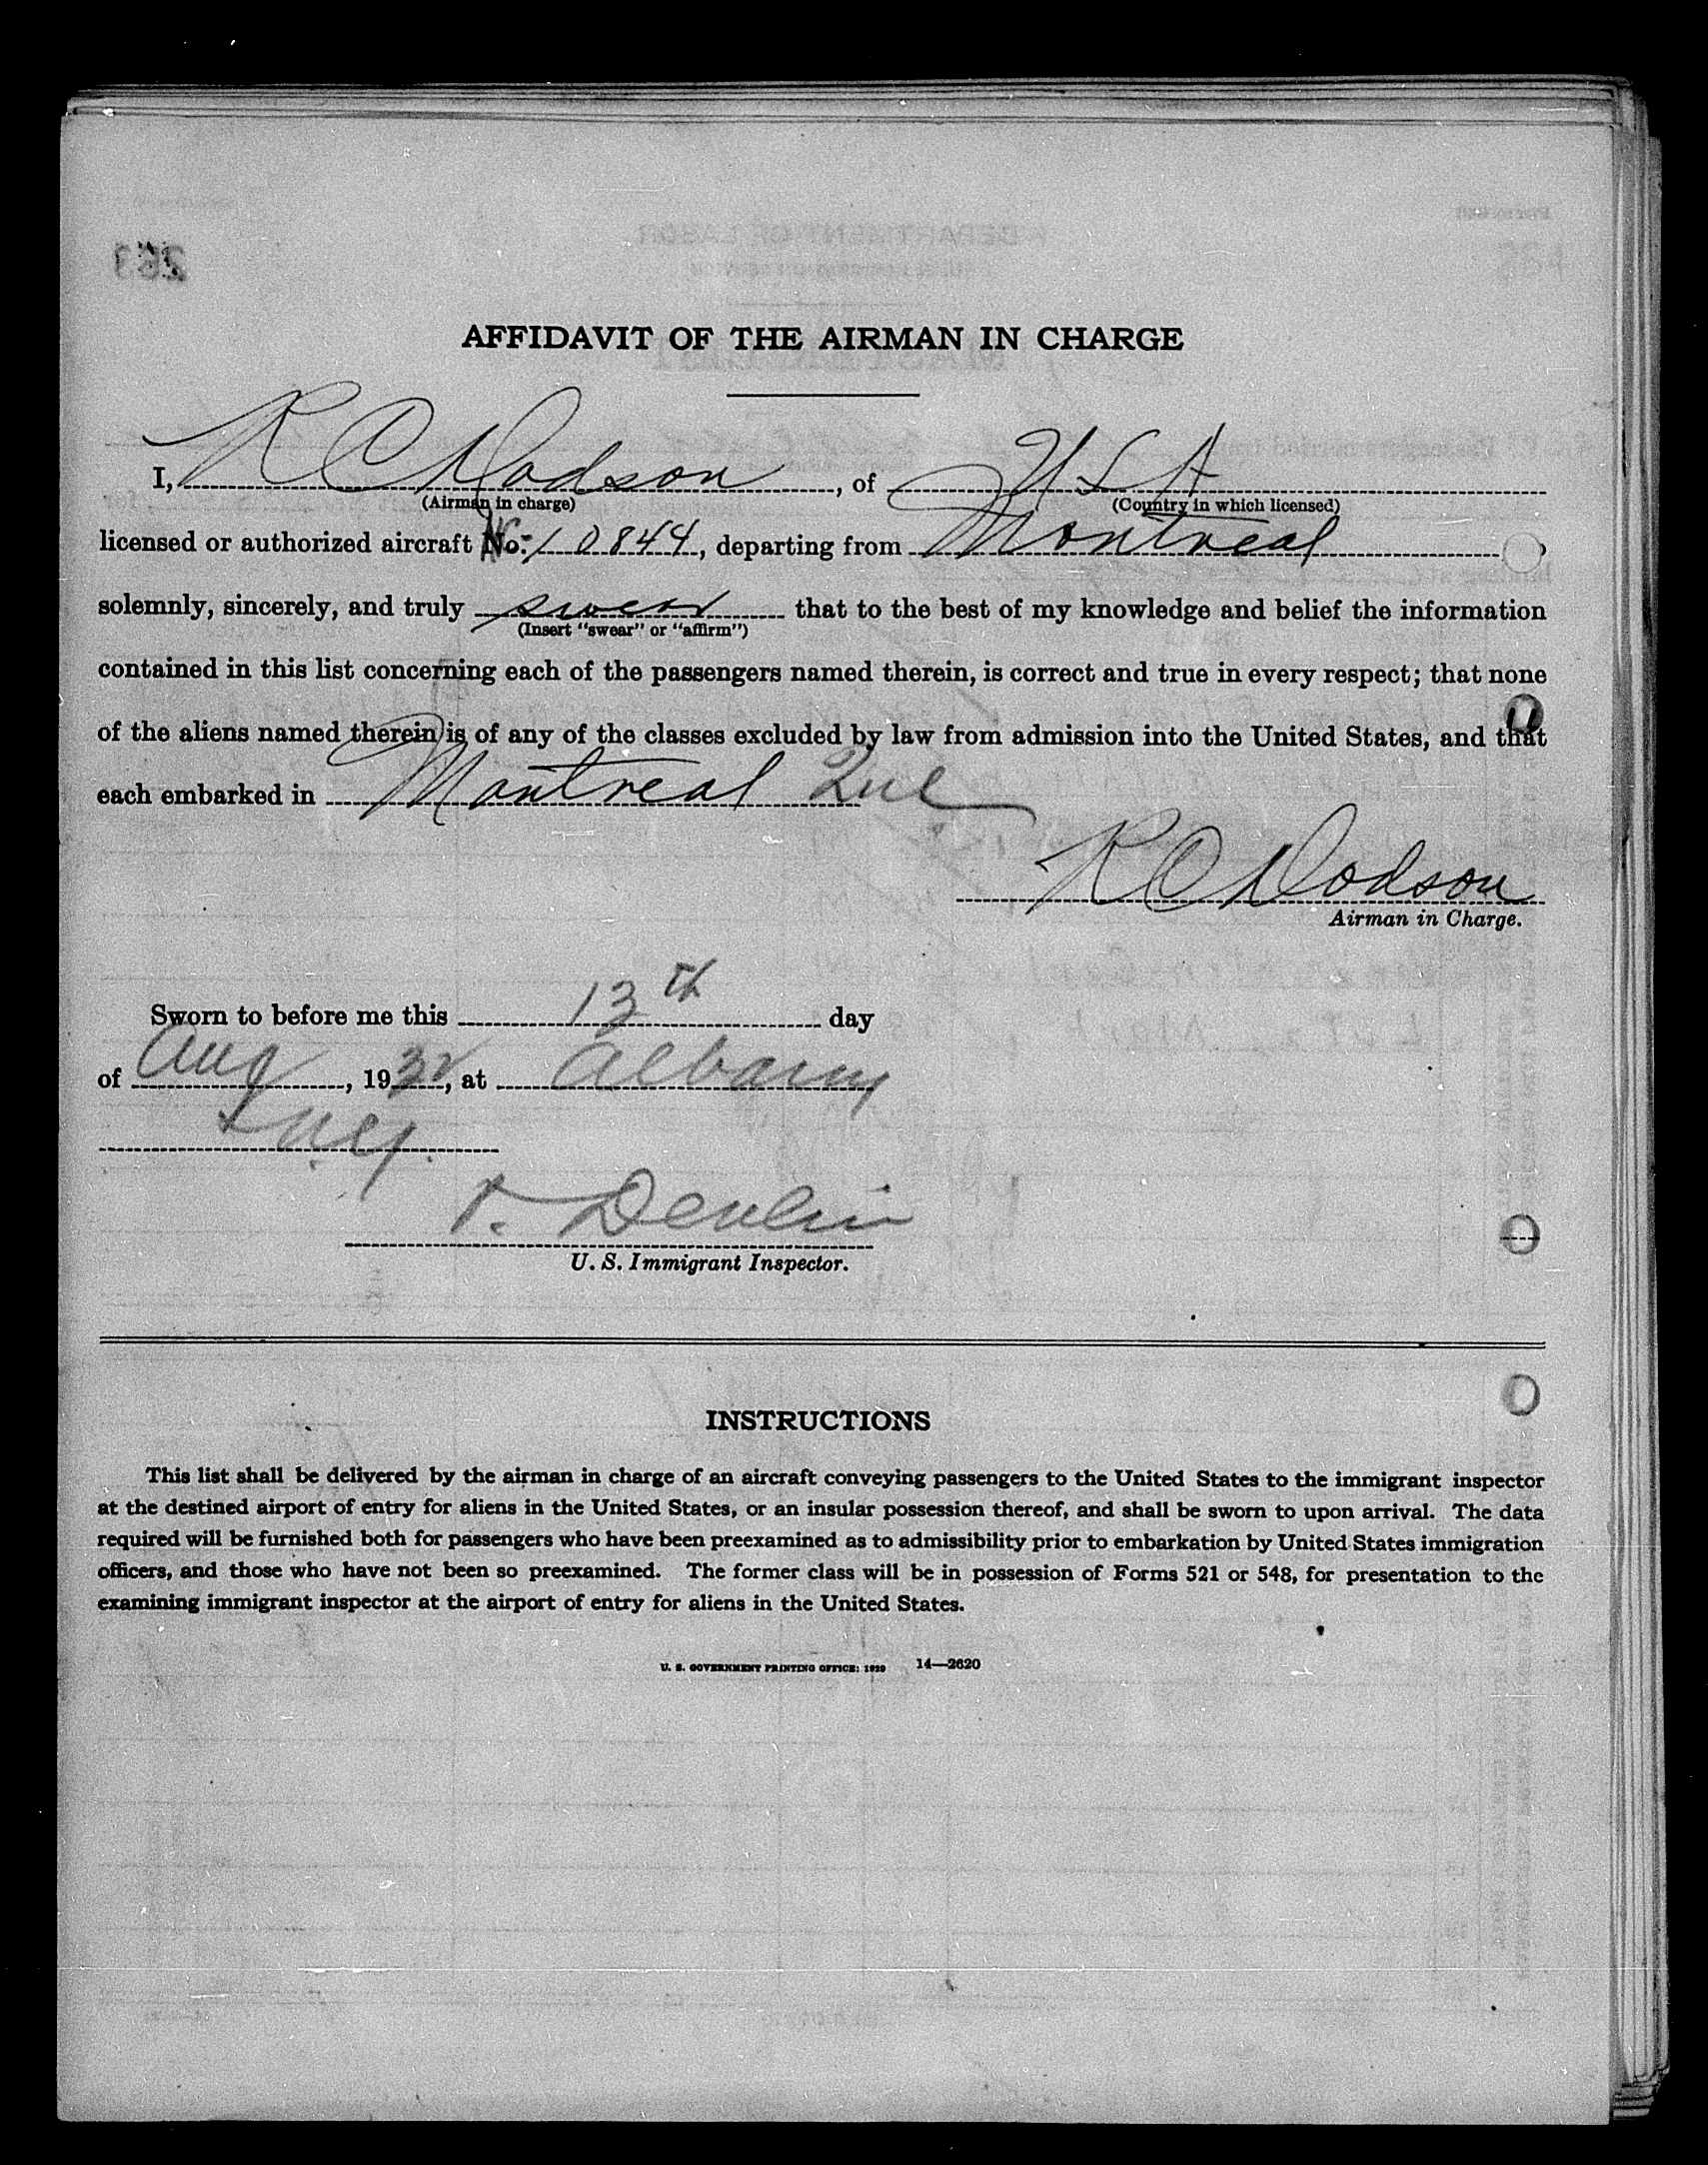 AFFIDAVIT OF THE AIRMAN IN CHARGE
I, R C Dodson, of U S A
(Airman in charge) (Country in which licensed)
licensed or authorized aircraft No. 10844, departing from Montreal,
solemnly, sincerely, and truly swear that to the best of my knowledge and belief the information
(Insert "swear" or "affirm")
contained in this list concerning each of the passengers named therein, is correct and true in every respect; that none
of the aliens named therein is of any of the classes excluded by law from admission into the United States, and that
each embarked in Montreal Que
R C Dodson
Airman in Charge.
Sworn to before me this 13th day
of Aug, 1932, at Albany
N.Y.
P. Devlin
U. S. Immigrant Inspector.
INSTRUCTIONS
This list shall be delivered by the airman in charge of an aircraft conveying passengers to the United States to the immigrant inspector
at the destined airport of entry for aliens in the United States, or an insular possession thereof, and shall be sworn to upon arrival. The data
required will be furnished both for passengers who have been preexamined as to admissibility prior to embarkation by United States immigration
officers, and those who have not been so preexamined. The former class will be in possession of Forms 521 or 548, for presentation to the
examining immigrant inspector at the airport of entry for aliens in the United States.
U. S. GOVERNMENT PRINTING OFFICE: 1929 14—2620